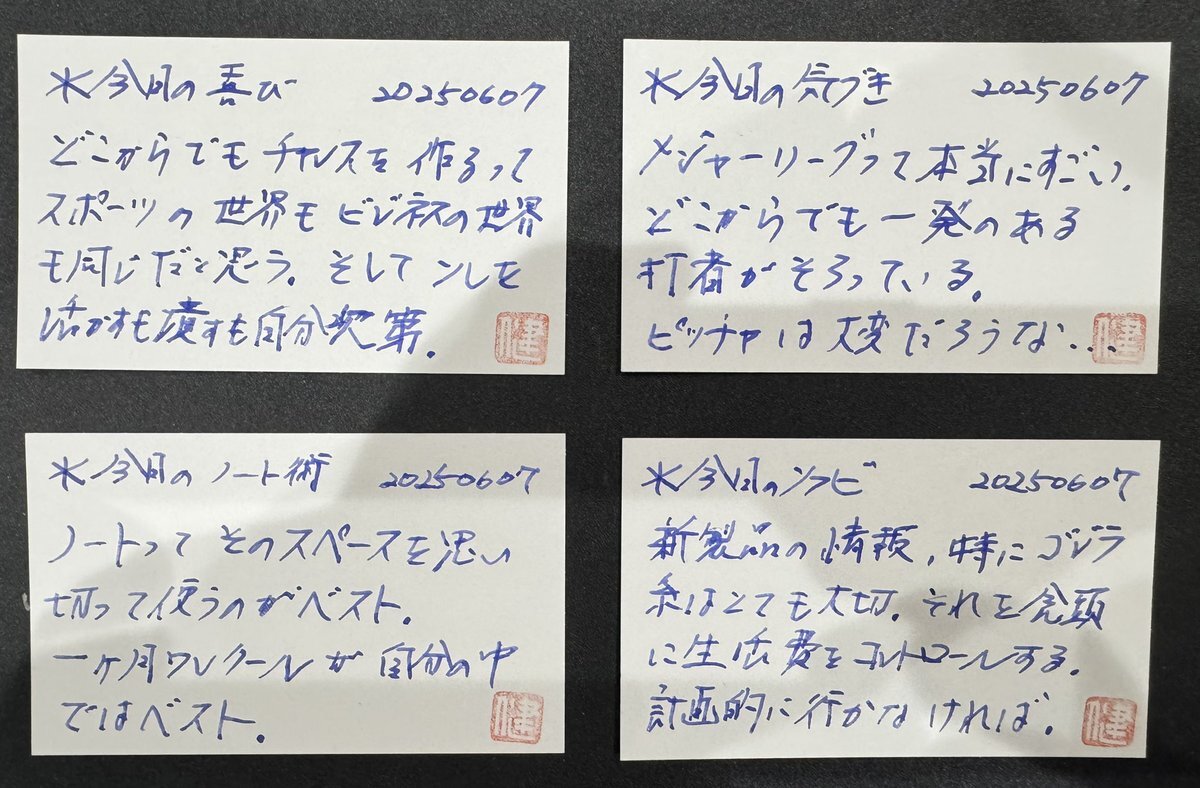 *今日の喜び 20250607
どこからでもチャンスを作るって
スポーツの世界もビジネスの世界
も同じだと思う。そしてソレを
活かすも潰すも自分次第。
健
*今日の気づき 20250607
メジャーリーグって本当にすごい。
どこからでも一発のある
打者がそろっている。
ピッチャは大変だろうな...
健
*今日のノート術 20250607
ノートってそのスペースを思い
切って使うのがベスト。
一ヶ月ワンクールが自分の中
ではベスト。
健
*今日のソフビ 20250607
新製品の情報,特にゴジラ
系はとても大切。それを念頭
に生活費をコントロールする。
計画的に行かなければ。
健